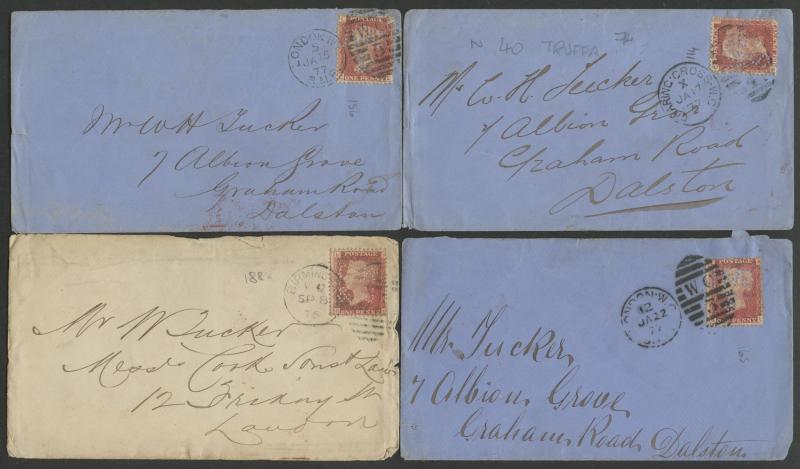 LONDON·W.C
5
JA 15
77
POSTAGE
ONE PENNY
156
Mr W H Tucker
7 Albion Grove
Graham Road
Dalston
N 40 TRUFFA 74
114
CHARING·CROSS·W.C
X
JA 17
POSTAGE
ONE PENNY
Mr. W. H. Tucker
7 Albion Gro
Graham Road
Dalston
188
SP 8
76
POSTAGE
ONE PENNY
Mr W Tucker
Messrs Cook Sons & Law
12 Friday St
London
LONDON·W.C
12
JA 22
77
W C
POSTAGE
ONE PENNY
165
Mr. Tucker,
7 Albion Grove
Graham Road, Dalston